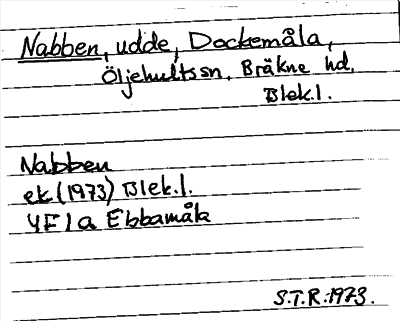 Nabben, udde, Dockemåla,
Öljehultssn, Bräkne hd,
Blek.l.
Nabben
ek (1973) Blek.l.
4F1a Ebbamåla
S.T.R. 1973.